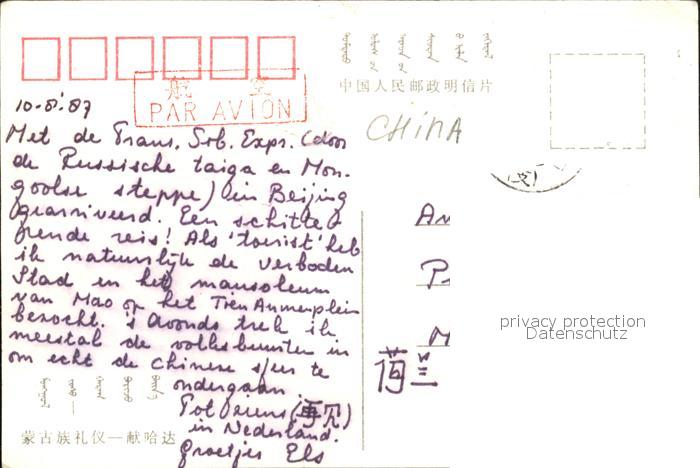 中国人民邮政明信片
航 空
PAR AVION
CHINA
10-8-'87
Met de Trans. Sib. Expr. (door
de Russische taiga en Mon-
goolse steppe) in Beijing
gearriveerd. Een schitte-
rende reis! Als 'tourist' heb
ik natuurlijk de Verboden
Stad en het mausoleum
van Mao op het Tien Anmenplein
bezocht. 's Avonds trek ik
meestal de volksbuurten in
om echt de Chinese sfeer te
ondergaan.
Tot ziens (再见)
in Nederland.
Groetjes Els
荷兰
蒙古族礼仪—献哈达
privacy protection
Datenschutz